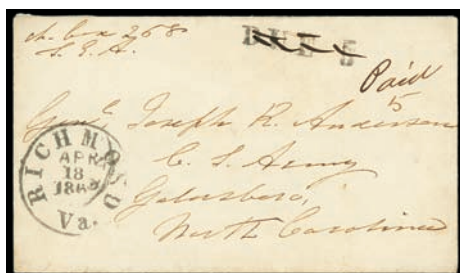 DUE 5
Paid
5
Genl Joseph R. Anderson
C. S. Army
Goldsboro,
North Carolina
RICHMOND
APR
18
Va.